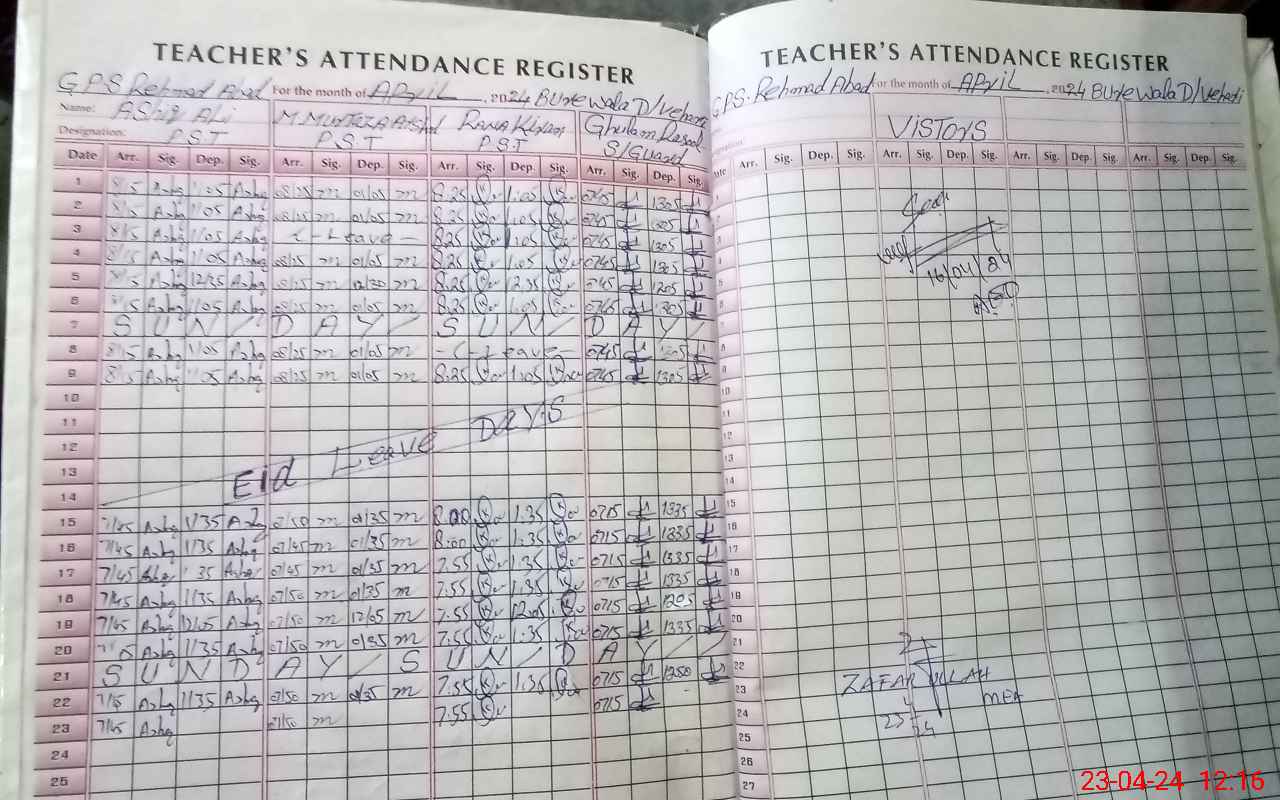 TEACHER'S ATTENDANCE REGISTER
G.P.S. Rehmad Abad For the month of APriL, 2024 BUreWala D/Vehari
Name: AShiq Ali M.Murtaza Rana Ghulam Rasool
Designation: P.S.T P.S.T P.S.T S/Guard
Date Arr. Sig. Dep. Sig. Arr. Sig. Dep. Sig. Arr. Sig. Dep. Sig. Arr. Sig. Dep. Sig.
1 8/15 Ashq 1/05 Ashq 08/25 m 01/05 m 8.25 1.05 0745 1305
2 8/15 Ashq 1/05 Ashq 08/25 m 01/05 m 8.25 1.05 0745 1305
3 8/15 Ashq 1/05 Ashq - Leave - 8.25 1.05 0745 1305
4 8/15 Ashq 1/05 Ashq 08/25 m 01/05 m 8.25 1.05 0745 1305
5 8/15 Ashq 12/35 Ashq 08/25 m 12/30 m 8.25 12.35 0745 1205
6 8/15 Ashq 1/05 Ashq 08/25 m 01/05 m 8.25 1.05 0745 1305
7 S U N / D A Y / S U N / D A Y /
8 8/15 Ashq 1/05 Ashq 08/25 m 01/05 m - Leave - 0745 1305
9 8/15 Ashq 1/05 Ashq 08/25 m 01/05 m 8.25 1.05 0745 1305
10
11
12
13
Eid Leave DaYS
14
15 7/45 Ashq 1/35 Ashq 07/50 m 01/35 m 8.00 1.35 0715 1335
16 7/45 Ashq 1/35 Ashq 07/45 m 01/35 m 8.00 1.35 0715 1335
17 7/45 Ashq 1/35 Ashq 07/45 m 01/35 m 7.55 1.35 0715 1335
18 7/45 Ashq 1/35 Ashq 07/50 m 01/35 m 7.55 1.35 0715 1335
19 7/45 Ashq 12/05 Ashq 07/50 m 12/05 m 7.55 12.05 0715 1205
20 7/45 Ashq 1/35 Ashq 07/50 m 01/35 m 7.55 1.35 0715 1335
21 S U N D A Y / S U N / D A Y / /
22 7/45 Ashq 1/35 Ashq 07/50 m 01/35 m 7.55 1.35 0715 1250
23 7/45 Ashq 07/50 m 7.55 0715
24
25
TEACHER'S ATTENDANCE REGISTER
G.P.S. Rehmad Abad For the month of APriL, 2024 BUreWala D/Vehari
ViSTOrS
Date Arr. Sig. Dep. Sig. Arr. Sig. Dep. Sig. Arr. Sig. Dep. Sig. Arr. Sig. Dep. Sig.
1
2
3
16/04/24
4
5
AEO
6
7
8
9
10
11
12
13
15
16
17
18
19
20
21
22
ZAFAR ULLAH
23 MEA
24
25
26
27
23-04-24 12:16